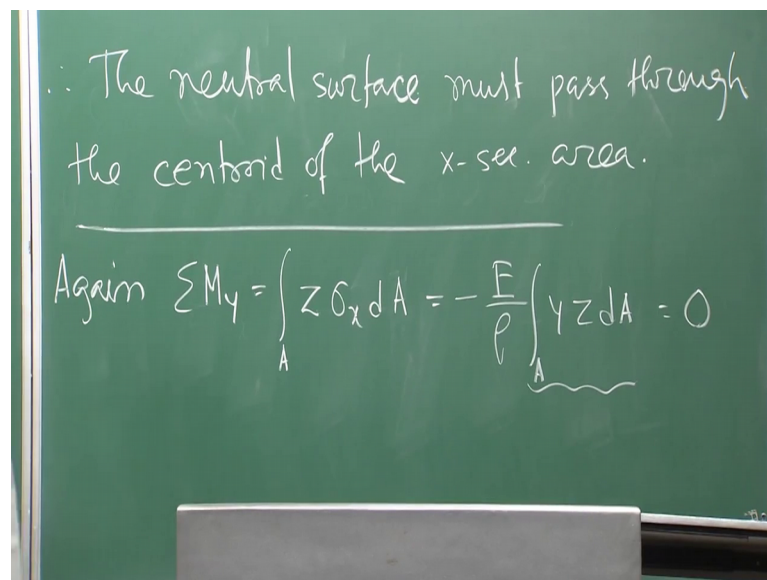 ∴ The neutral surface must pass through
the centroid of the x-sec. area.
Again ΣM_y = ∫_A z σ_x dA = - E/ρ ∫_A y z dA = 0